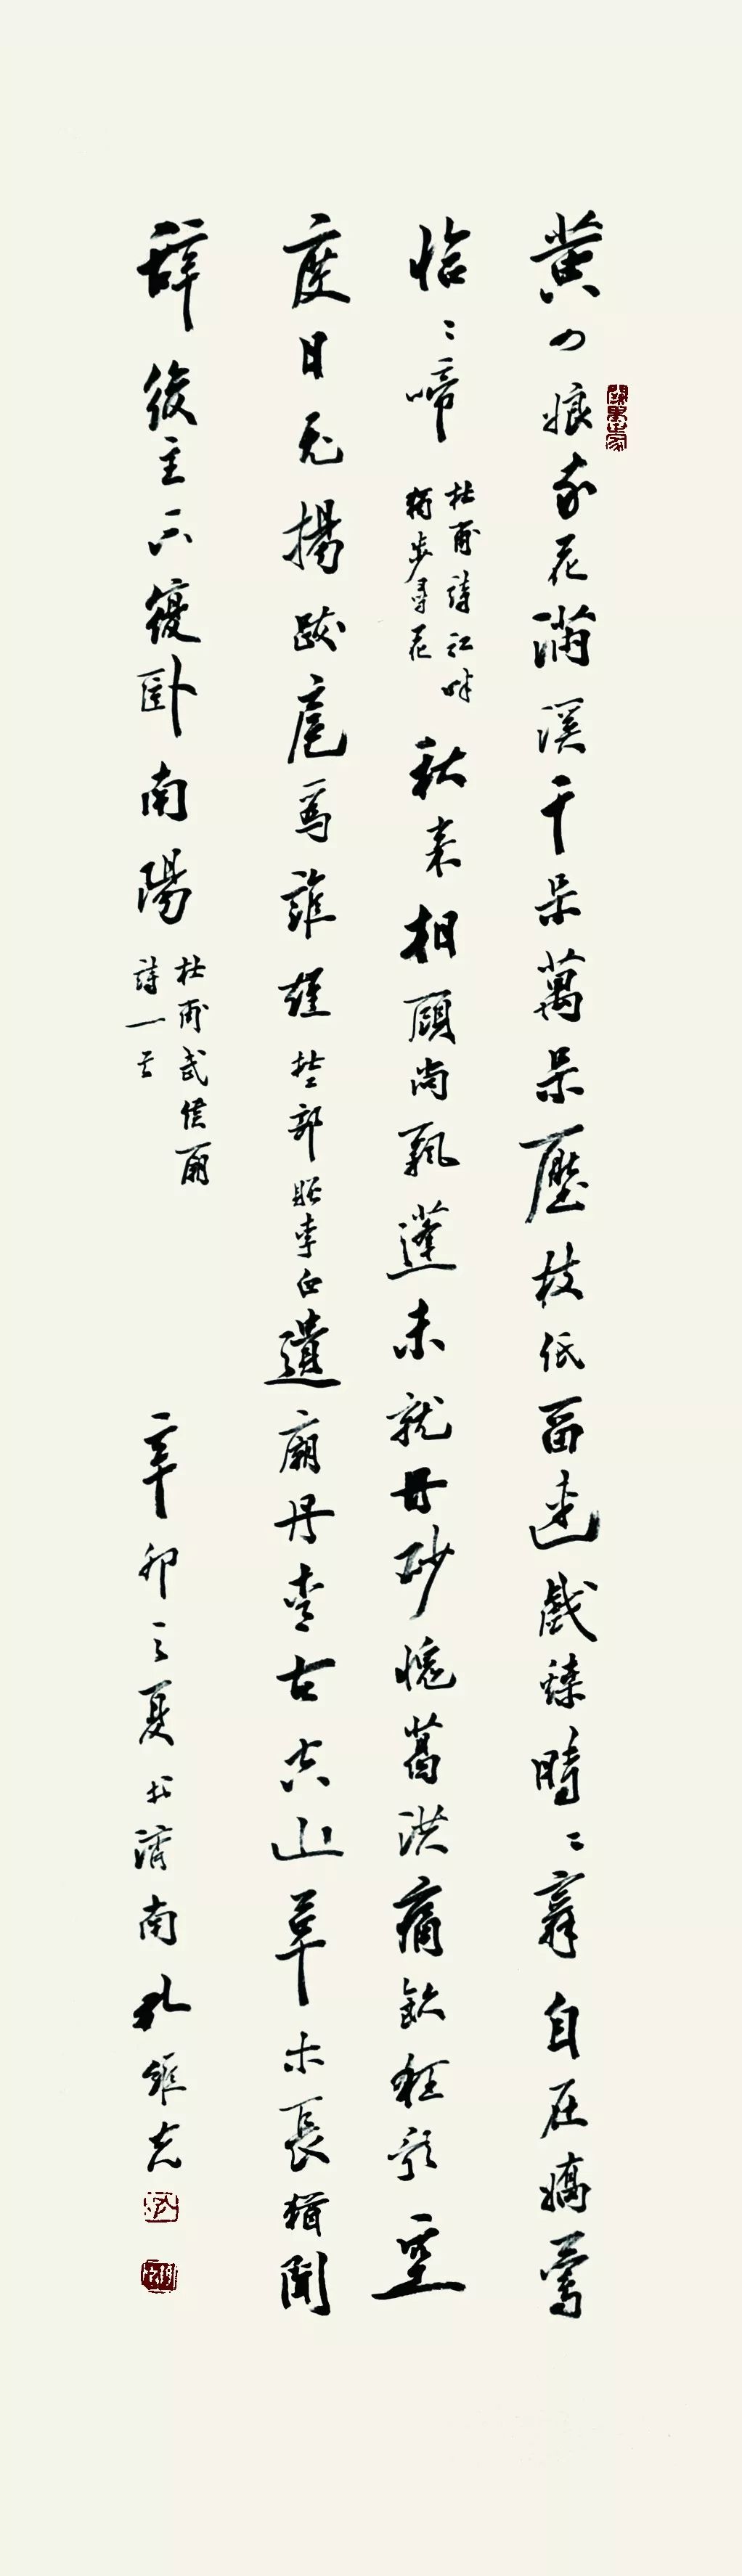 黄四娘家花滿溪千朵萬朵壓枝低留連戲蝶時〻舞自在嬌鶯
恰〻啼
杜甫詩江畔
獨步尋花
秋來相顧尚飄蓬未就丹砂愧葛洪痛飲狂歌空
度日飛揚跋扈爲誰雄
杜工部贈李白
遺廟丹青古空山草木長猶聞
辭後主不復臥南陽
杜甫武侯廟
詩一首
辛卯之夏於濟南孔維克